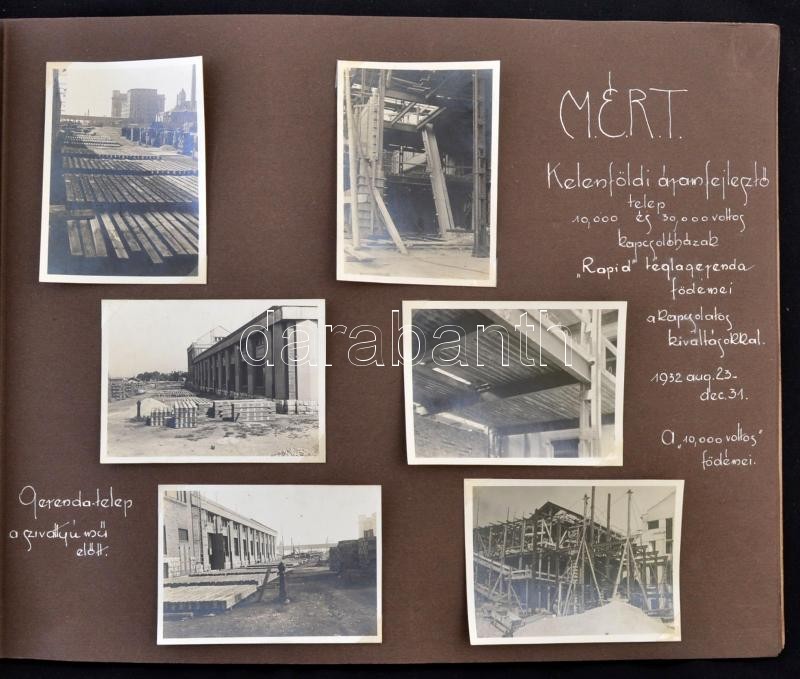 M.É.R.T.
Kelenföldi áramfejlesztő
telep
10,000 és 30,000 voltos
kapcsolóházak
„Rapid" téglagerenda
födémei
a kapcsolatos
kiváltásokkal.
1932 aug. 23 -
dec. 31.
A „10,000 voltos"
födémei.
Gerenda-telep
a szivattyú mű
előtt.
darabanth